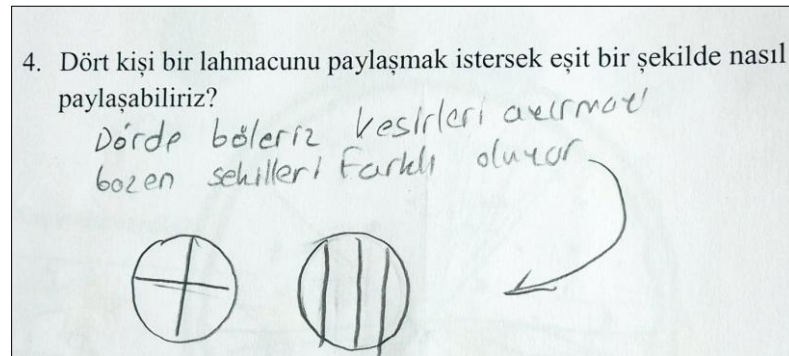 4. Dört kişi bir lahmacunu paylaşmak istersek eşit bir şekilde nasıl
paylaşabiliriz?
Dörde böleriz kesirleri ayırmak
bazen sekilleri farklı oluyor